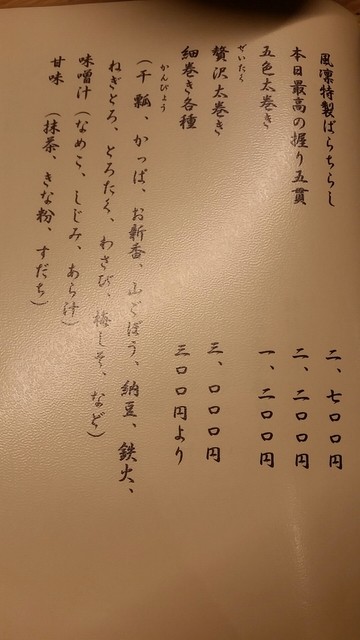 風凛特製ばらちらし 二、七〇〇円
本日最高の握り五貫 二、二〇〇円
五色太巻き 一、二〇〇円
ぜいたく
贅沢太巻き 三、〇〇〇円
細巻き各種 三〇〇円より
かんぴょう
(干瓢、かっぱ、お新香、山ごぼう、納豆、鉄火、
ねぎとろ、とろたく、わさび、梅しそ、など)
味噌汁(なめこ、しじみ、あら汁)
甘味 (抹茶、きな粉、すだち)